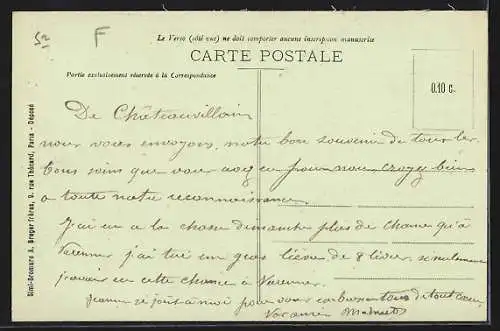 5=
F
Le Verso (côté vue) ne doit comporter aucune inscription manuscrite
CARTE POSTALE
Partie exclusivement réservée à la Correspondance
0.10 c.
Simi-Bromure A. Breger frères, 9, rue Thénard, Paris - Déposé
De Châteauvillain
nous vous envoyons, notre bon souvenir de tous les
bons soins que vous avez eu pour nous croyez bien
a toute notre reconnaissance.
J'ai eu a la chasse dimanche plus de chance qu'à
Varennes j'ai tué un gros lièvre de 8 livres seulement
j'avais eu cette chance à Varennes
Jeanne se joint à moi pour vous embrasser tous de tout cœur